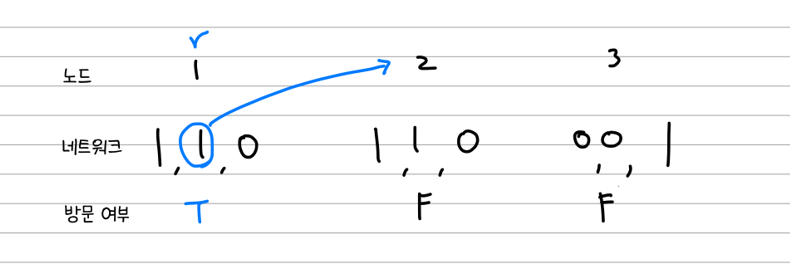 노드 1 2 3
네트워크 1,1,0 1,1,0 0,0,1
방문 여부 T F F